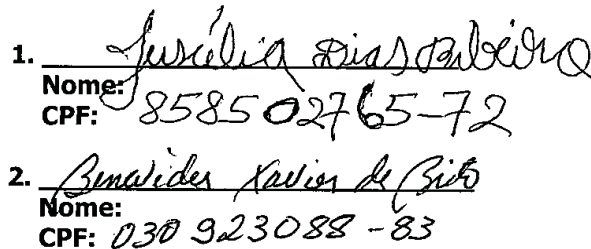 1. Juscélia Dias Ribeiro
Nome:
CPF: 858502765-72
2. Benavides Xavier de Brito
Nome:
CPF: 030 923088-83